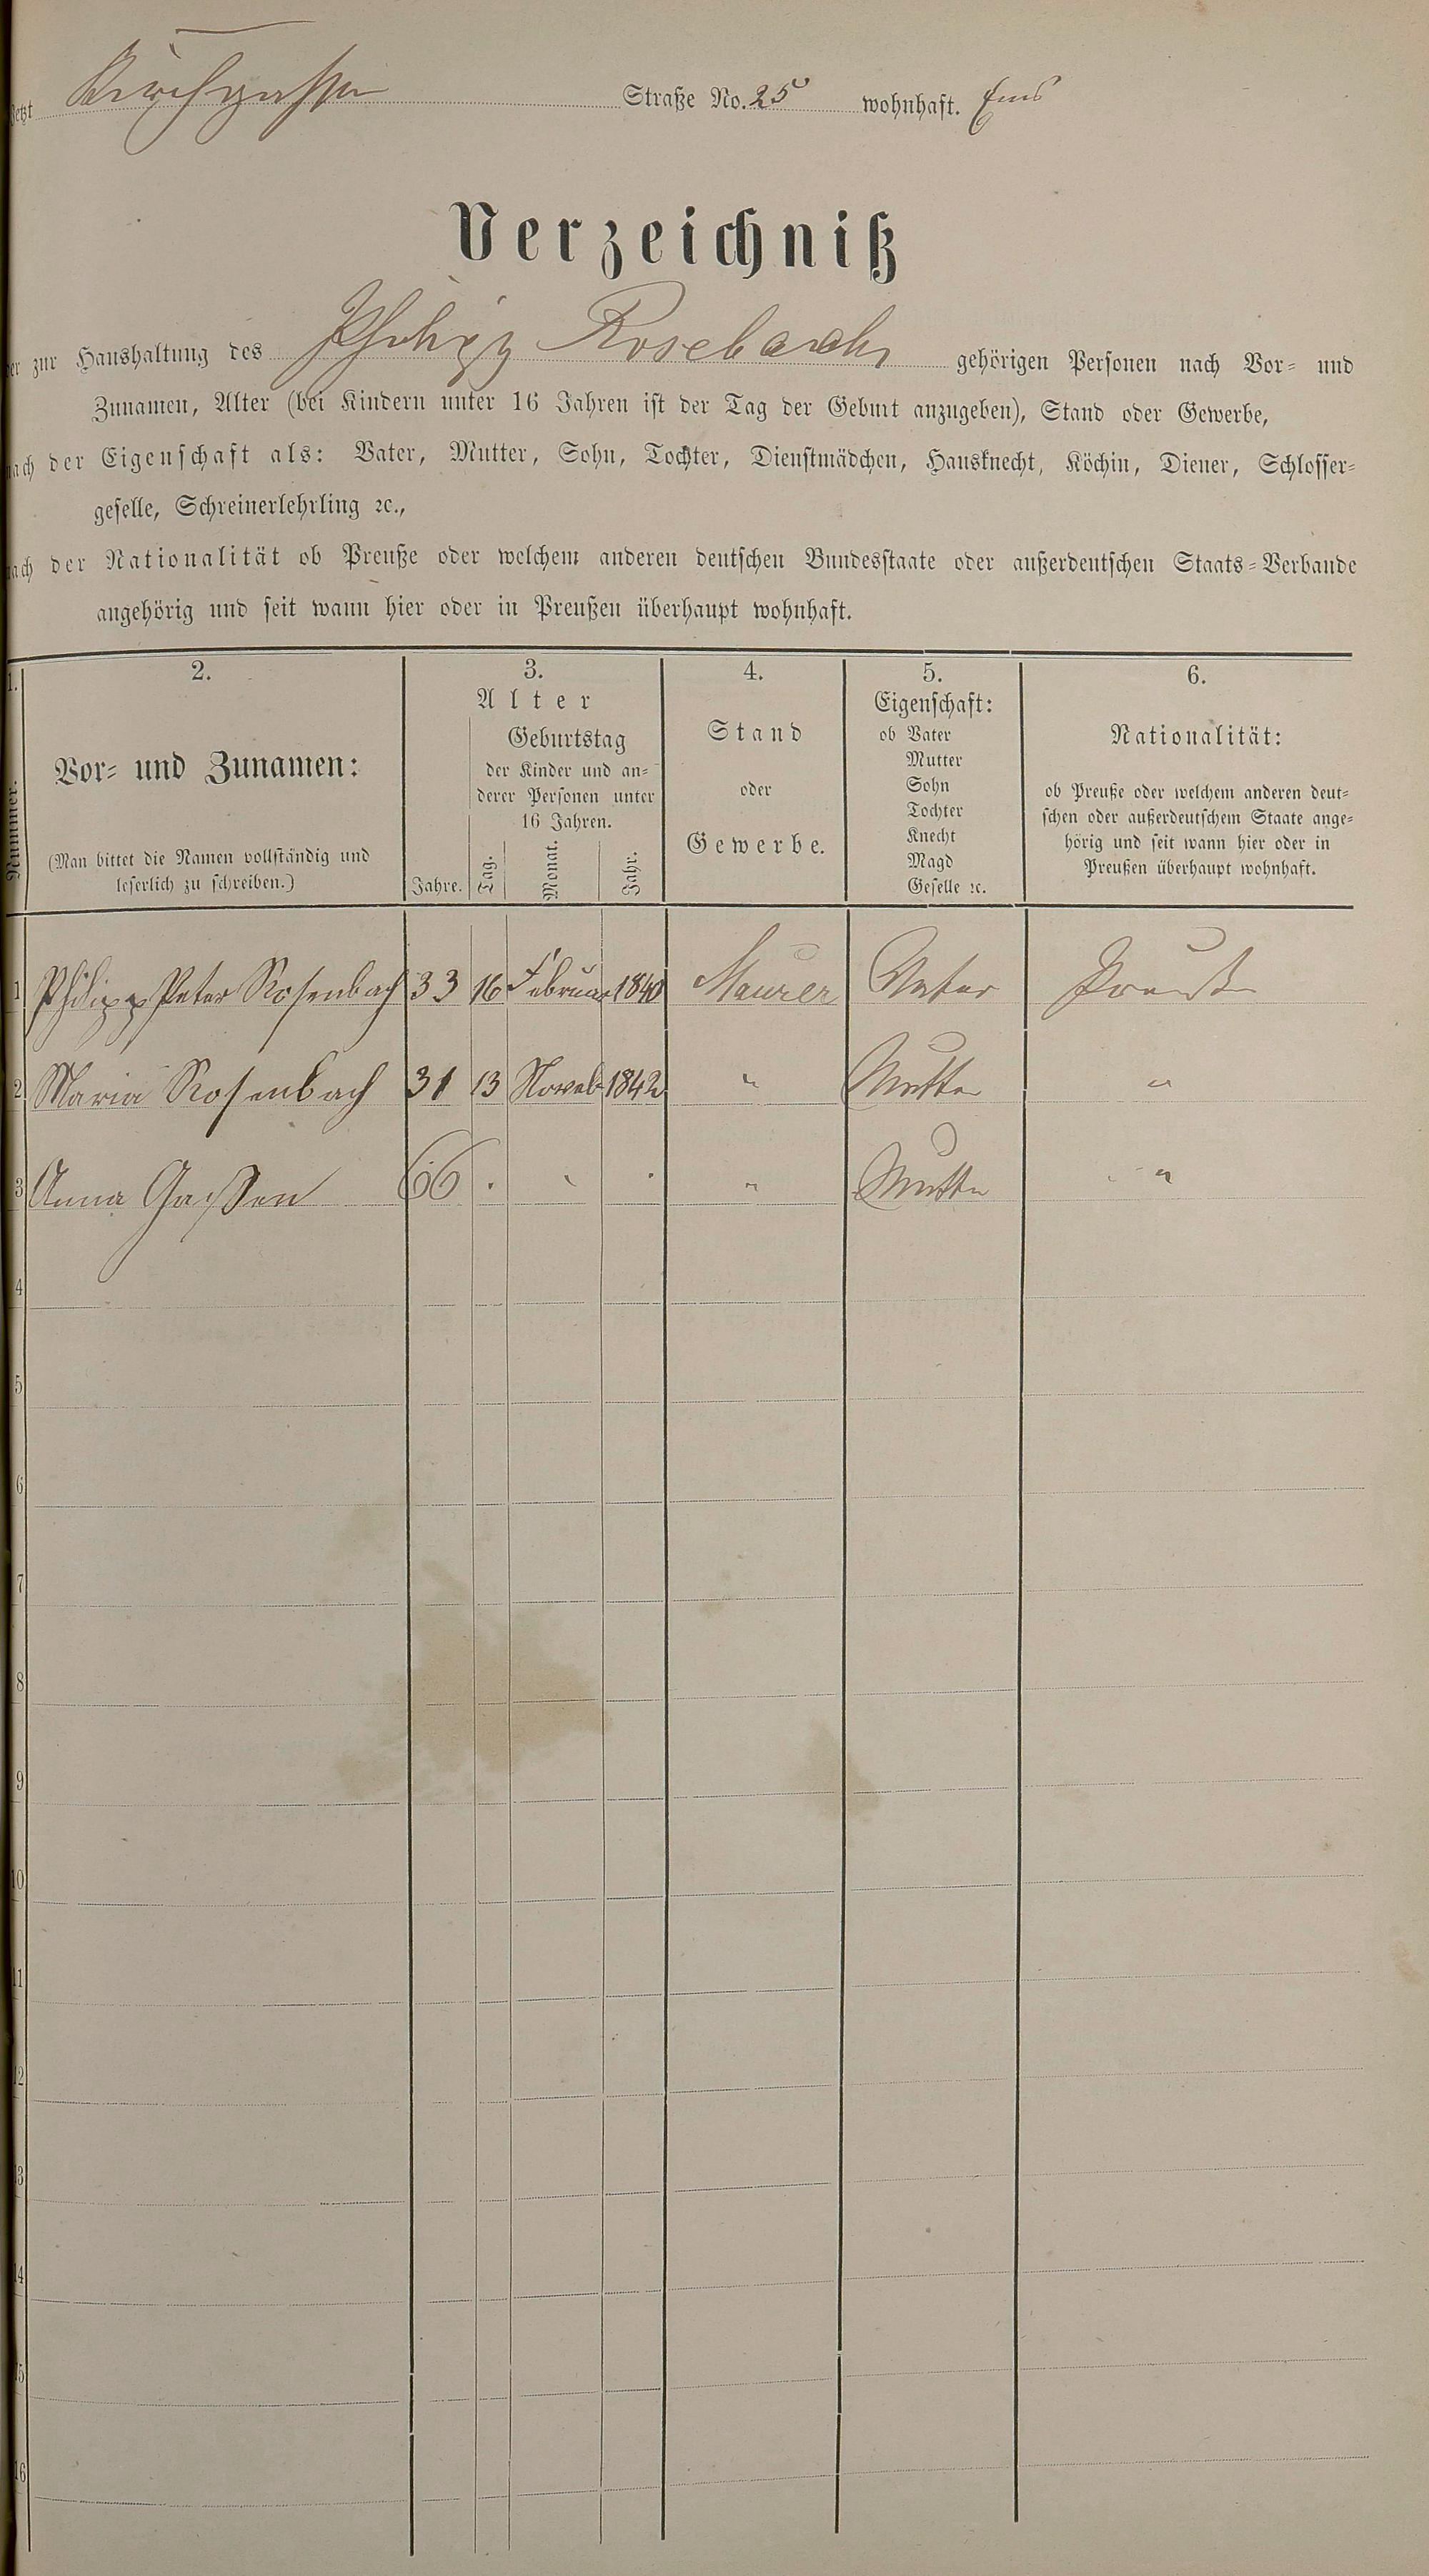 jetzt Kirchgasse Straße No. 25 wohnhaft. Ems
Verzeichniß
der zur Haushaltung des Philipp Rosebach gehörigen Personen nach Vor- und
Zunamen, Alter (bei Kindern unter 16 Jahren ist der Tag der Geburt anzugeben), Stand oder Gewerbe,
nach der Eigenschaft als: Vater, Mutter, Sohn, Tochter, Dienstmädchen, Hausknecht, Köchin, Diener, Schlosser-
geselle, Schreinerlehrling ꝛc.,
nach der Nationalität ob Preuße oder welchem anderen deutschen Bundesstaate oder außerdeutschen Staats-Verbande
angehörig und seit wann hier oder in Preußen überhaupt wohnhaft.
1. 2. 3. 4. 5. 6.
Nummer.
Vor- und Zunamen:
(Man bittet die Namen vollständig und
leserlich zu schreiben.)
Alter
Geburtstag
der Kinder und an-
derer Personen unter
16 Jahren.
Jahre. Tag. Monat. Jahr.
Stand
oder
Gewerbe.
Eigenschaft:
ob Vater
Mutter
Sohn
Tochter
Knecht
Magd
Geselle ꝛc.
Nationalität:
ob Preuße oder welchem anderen deut-
schen oder außerdeutschem Staate ange-
hörig und seit wann hier oder in
Preußen überhaupt wohnhaft.
1 Philipp Peter Rosenbach 33 16 Februar 1840 Maurer Vater Preuße
2 Maria Rosenbach 31 13 Noveb 1842 " Mutter "
3 Anna Gaßen 66 " Mutter "
4
5
6
7
8
9
10
11
12
13
14
15
16